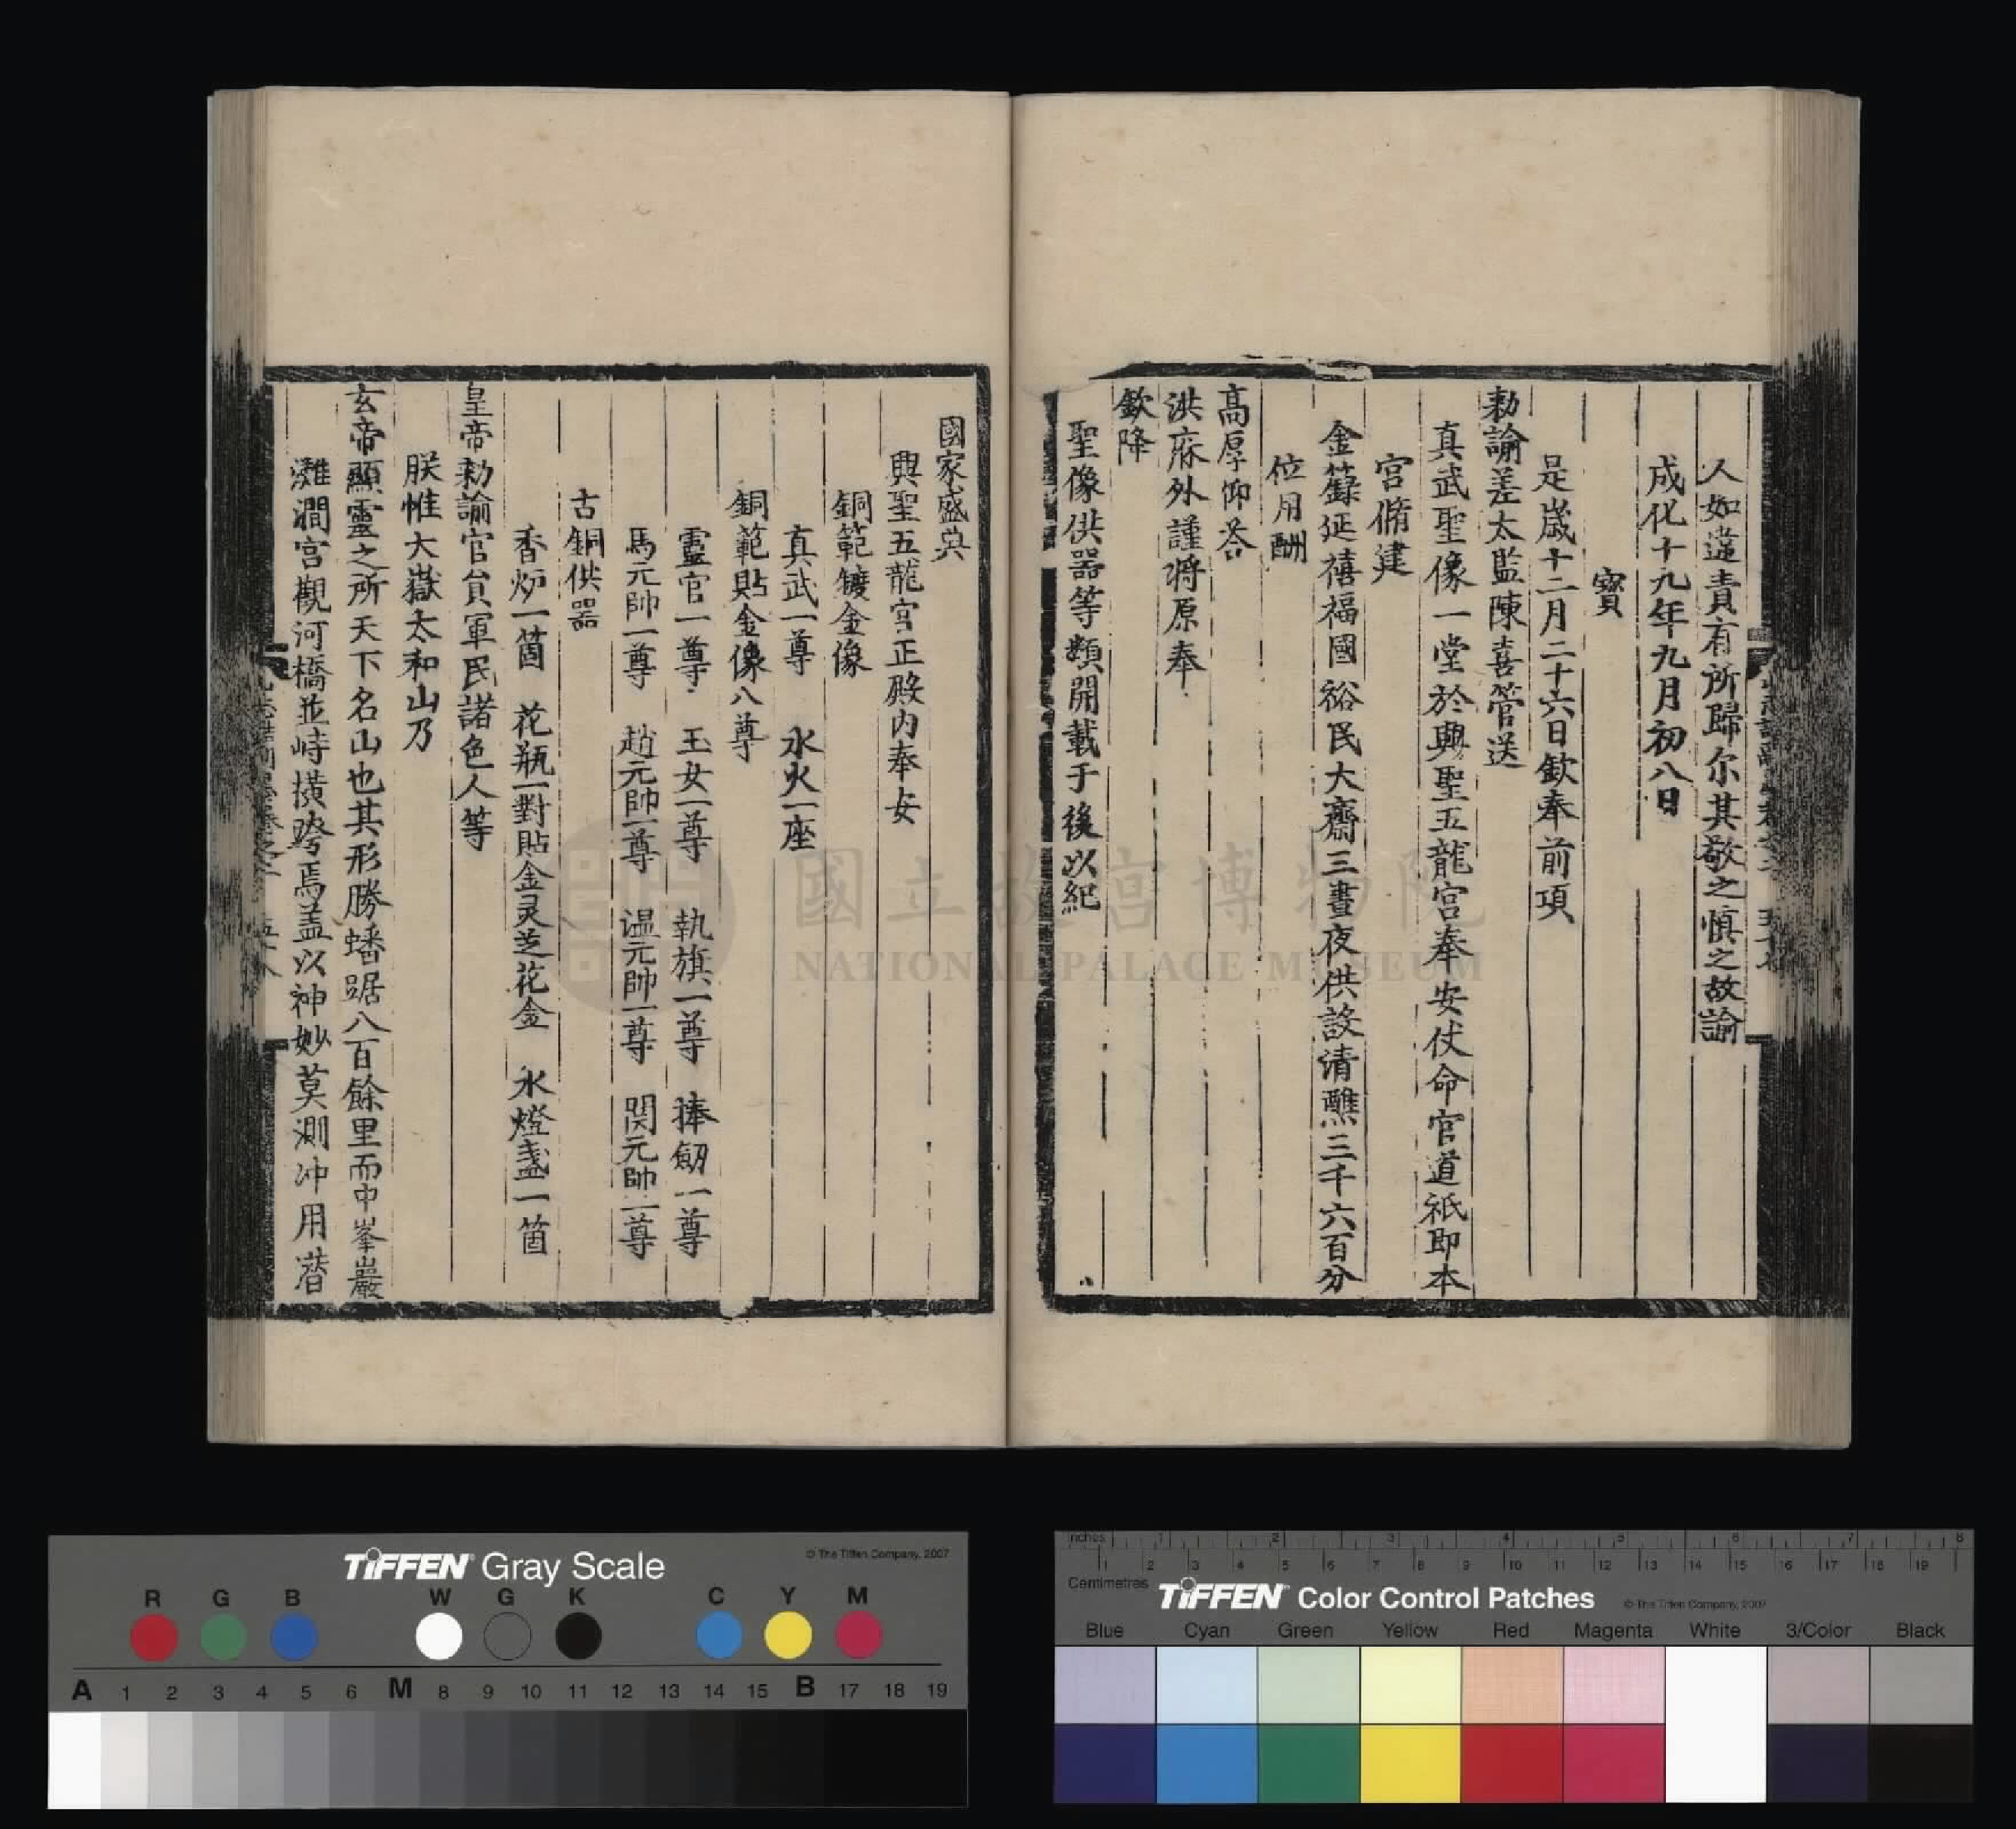 人如違責有所歸尔其敬之慎之故諭
成化十九年九月初八日
寳
是歳十二月二十六日欽奉前項
勅諭差太監陳喜管送
真武聖像一堂於興聖五龍宫奉安仗命官道祇即本
宫脩建
金籙延禧福國裕民大齋三晝夜供設清醮三千六百分
位用酬
髙厚仰荅
洪庥外謹將原奉
欽降
聖像供器等類開載于後以紀
國家盛典
興聖五龍宫正殿内奉安
銅範鍍金像
真武一尊 水火一座
銅範貼金像八尊
靈官一尊 玉女一尊 執旗一尊 捧劒一尊
馬元帥一尊 趙元帥一尊 温元帥一尊 関元帥一尊
古銅供器
香炉一箇 花瓶一對貼金灵芝花金 水燈盞一箇
皇帝勅諭官員軍民諸色人等
朕惟大嶽太和山乃
玄帝顯靈之所天下名山也其形勝蟠踞八百餘里而中峯巖
灘澗宫觀河橋並峙橫跨焉盖以神妙莫測冲用潜
五十八
國立故宮博物院
NATIONAL PALACE MUSEUM
TIFFEN Gray Scale
© The Tiffen Company, 2007
R G B W G K C Y M
A 1 2 3 4 5 6 M 8 9 10 11 12 13 14 15 B 17 18 19
Inches 1 2 3 4 5 6 7 8
1 2 3 4 5 6 7 8 9 10 11 12 13 14 15 16 17 18 19
Centimetres
TIFFEN Color Control Patches
© The Tiffen Company, 2007
Blue Cyan Green Yellow Red Magenta White 3/Color Black